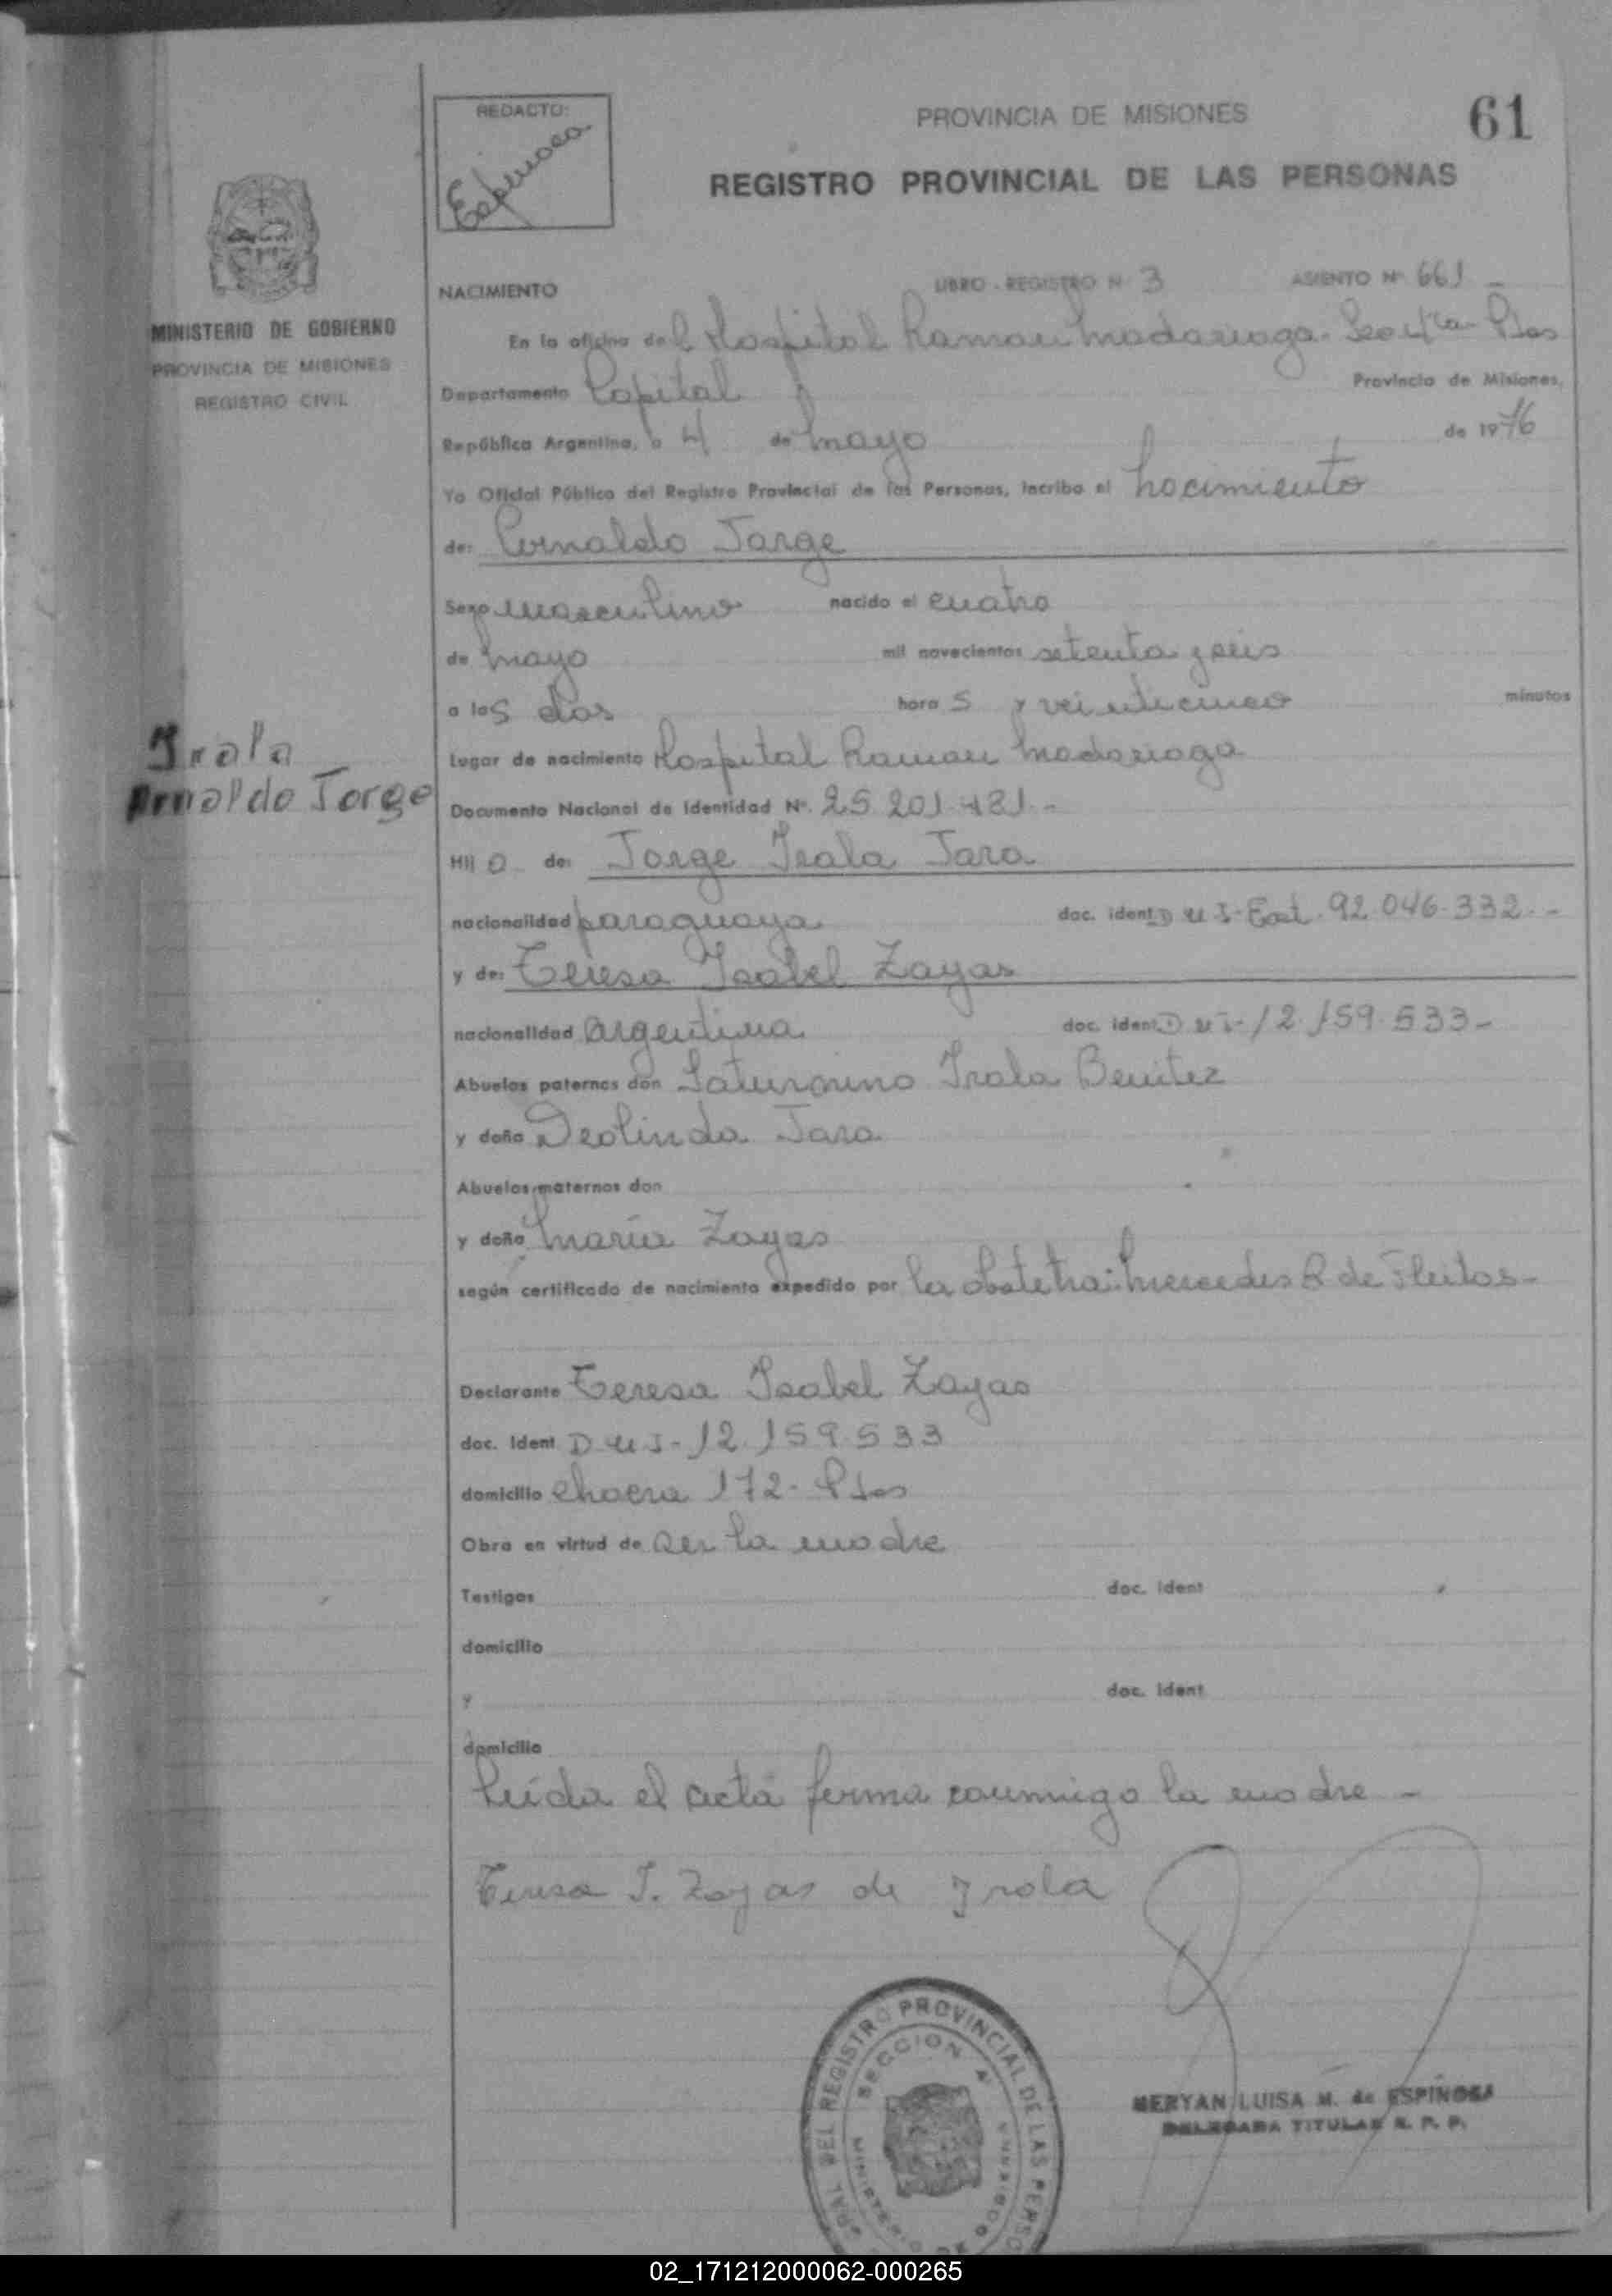 61
REDACTO:
Espinosa
PROVINCIA DE MISIONES
REGISTRO PROVINCIAL DE LAS PERSONAS
MINISTERIO DE GOBIERNO
PROVINCIA DE MISIONES
REGISTRO CIVIL
NACIMIENTO LIBRO - REGISTRO Nº 3 ASIENTO Nº 661
En la oficina del Hospital Ramon Madariaga - Sec 4ta - Pdas
Departamento Capital Provincia de Misiones,
República Argentina, a 4 de Mayo de 1976
Yo Oficial Público del Registro Provincial de las Personas, incribo el nacimiento
de: Arnaldo Jorge
Sexo masculino nacido el cuatro
de mayo mil novecientos setenta y seis
a las dos hora s y veinticinco minutos
Irala
Arnaldo Jorge
Lugar de nacimiento Hospital Ramon Madariaga
Documento Nacional de Identidad Nº. 25.201.481.-
Hij o de: Jorge Irala Jara
nacionalidad paraguaya doc. ident. D U I - Ext. 92.046.332.-
y de: Teresa Isabel Zayas
nacionalidad argentina doc. ident. D U I - 12.159.533-
Abuelos paternos don Saturnino Irala Benitez
y doña Deolinda Jara
Abuelos maternos don
y doña María Zayas
según certificado de nacimiento expedido por la obstetra: Mercedes R de Fleitas-
Declarante Teresa Isabel Zayas
doc. ident D U I - 12.159.533
domicilio chacra 172 - Pdas
Obra en virtud de ser la madre
Testigos doc. ident
domicilio
y doc. ident
domicilio
Leída el acta firma conmigo la madre -
Teresa I. Zayas de Irala
REGISTRO PROVINCIAL DE LAS
SECCION
MERYAN LUISA M. de ESPINOSA
DELEGADA TITULAR R. P. P.
02_171212000062-000265